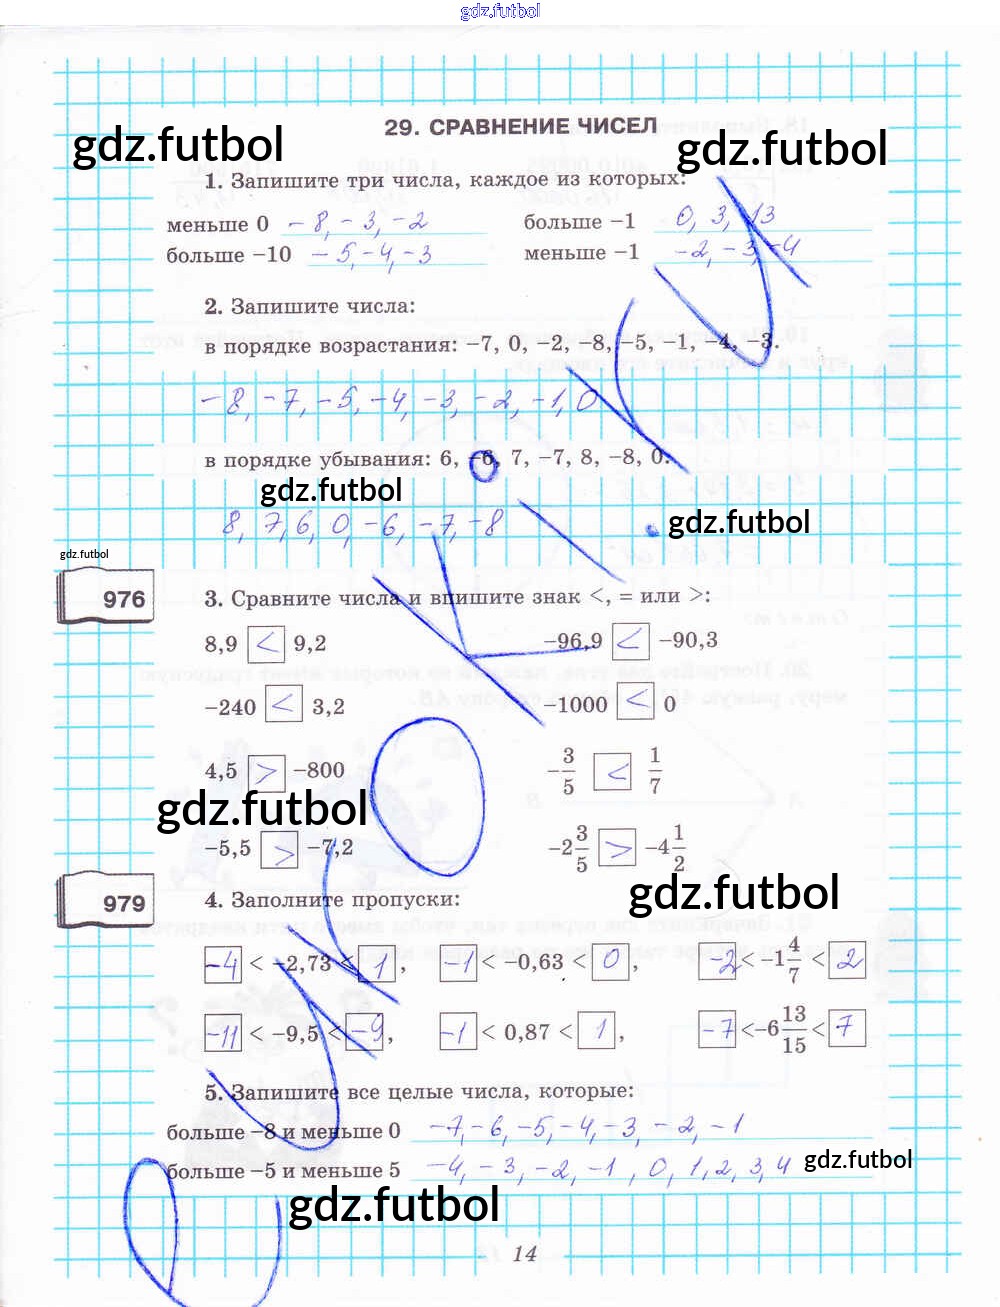 gdz.futbol
29. СРАВНЕНИЕ ЧИСЕЛ
gdz.futbol
gdz.futbol
1. Запишите три числа, каждое из которых:
меньше 0 −8, −3, −2 больше −1 0, 3, 13
больше −10 −5, −4, −3 меньше −1 −2, −3, −4
2. Запишите числа:
в порядке возрастания: −7, 0, −2, −8, −5, −1, −4, −3.
−8, −7, −5, −4, −3, −2, −1, 0
в порядке убывания: 6, −6, 7, −7, 8, −8, 0.
gdz.futbol
8, 7, 6, 0, −6, −7, −8
gdz.futbol
gdz.futbol
976
3. Сравните числа и впишите знак <, = или >:
8,9 < 9,2 −96,9 < −90,3
−240 < 3,2 −1000 < 0
4,5 > −800 −3/5 < 1/7
gdz.futbol
−5,5 > −7,2 −2 3/5 > −4 1/2
gdz.futbol
979
4. Заполните пропуски:
−4 < −2,73 < 1, −1 < −0,63 < 0, −2 < −1 4/7 < 2
−11 < −9,5 < −9, −1 < 0,87 < 1, −7 < −6 13/15 < 7
5. Запишите все целые числа, которые:
больше −8 и меньше 0 −7, −6, −5, −4, −3, −2, −1
больше −5 и меньше 5 −4, −3, −2, −1, 0, 1, 2, 3, 4
gdz.futbol
gdz.futbol
14